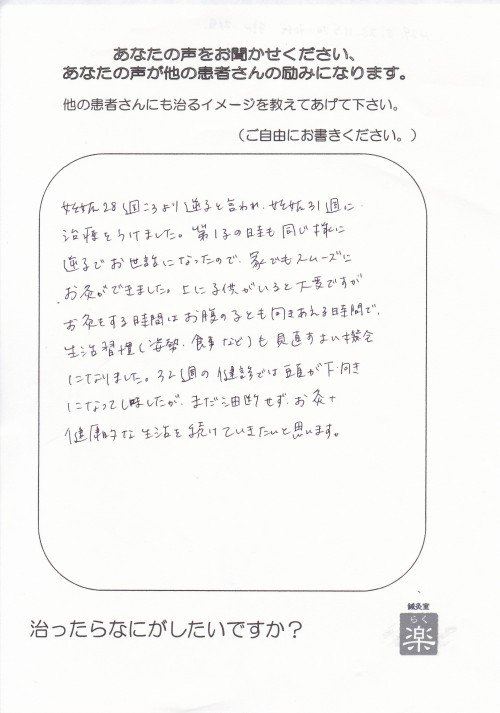 あなたの声をお聞かせください、
あなたの声が他の患者さんの励みになります。
他の患者さんにも治るイメージを教えてあげて下さい。
（ご自由にお書きください。）
妊娠28週ころより逆子と言われ、妊娠31週に
治療をうけました。第1子の時も同じ様に
逆子でお世話になったので、家でもスムーズに
お灸ができました。上に子供がいると大変ですが
お灸をする時間はお腹の子とも向きあえる時間で、
生活習慣（姿勢、食事など）も見直すよい機会
になりました。32週の健診では頭が下向き
になってましたが、まだ油断せず、お灸＋
健康的な生活を続けていきたいと思います。
治ったらなにがしたいですか？
鍼灸室
らく
楽